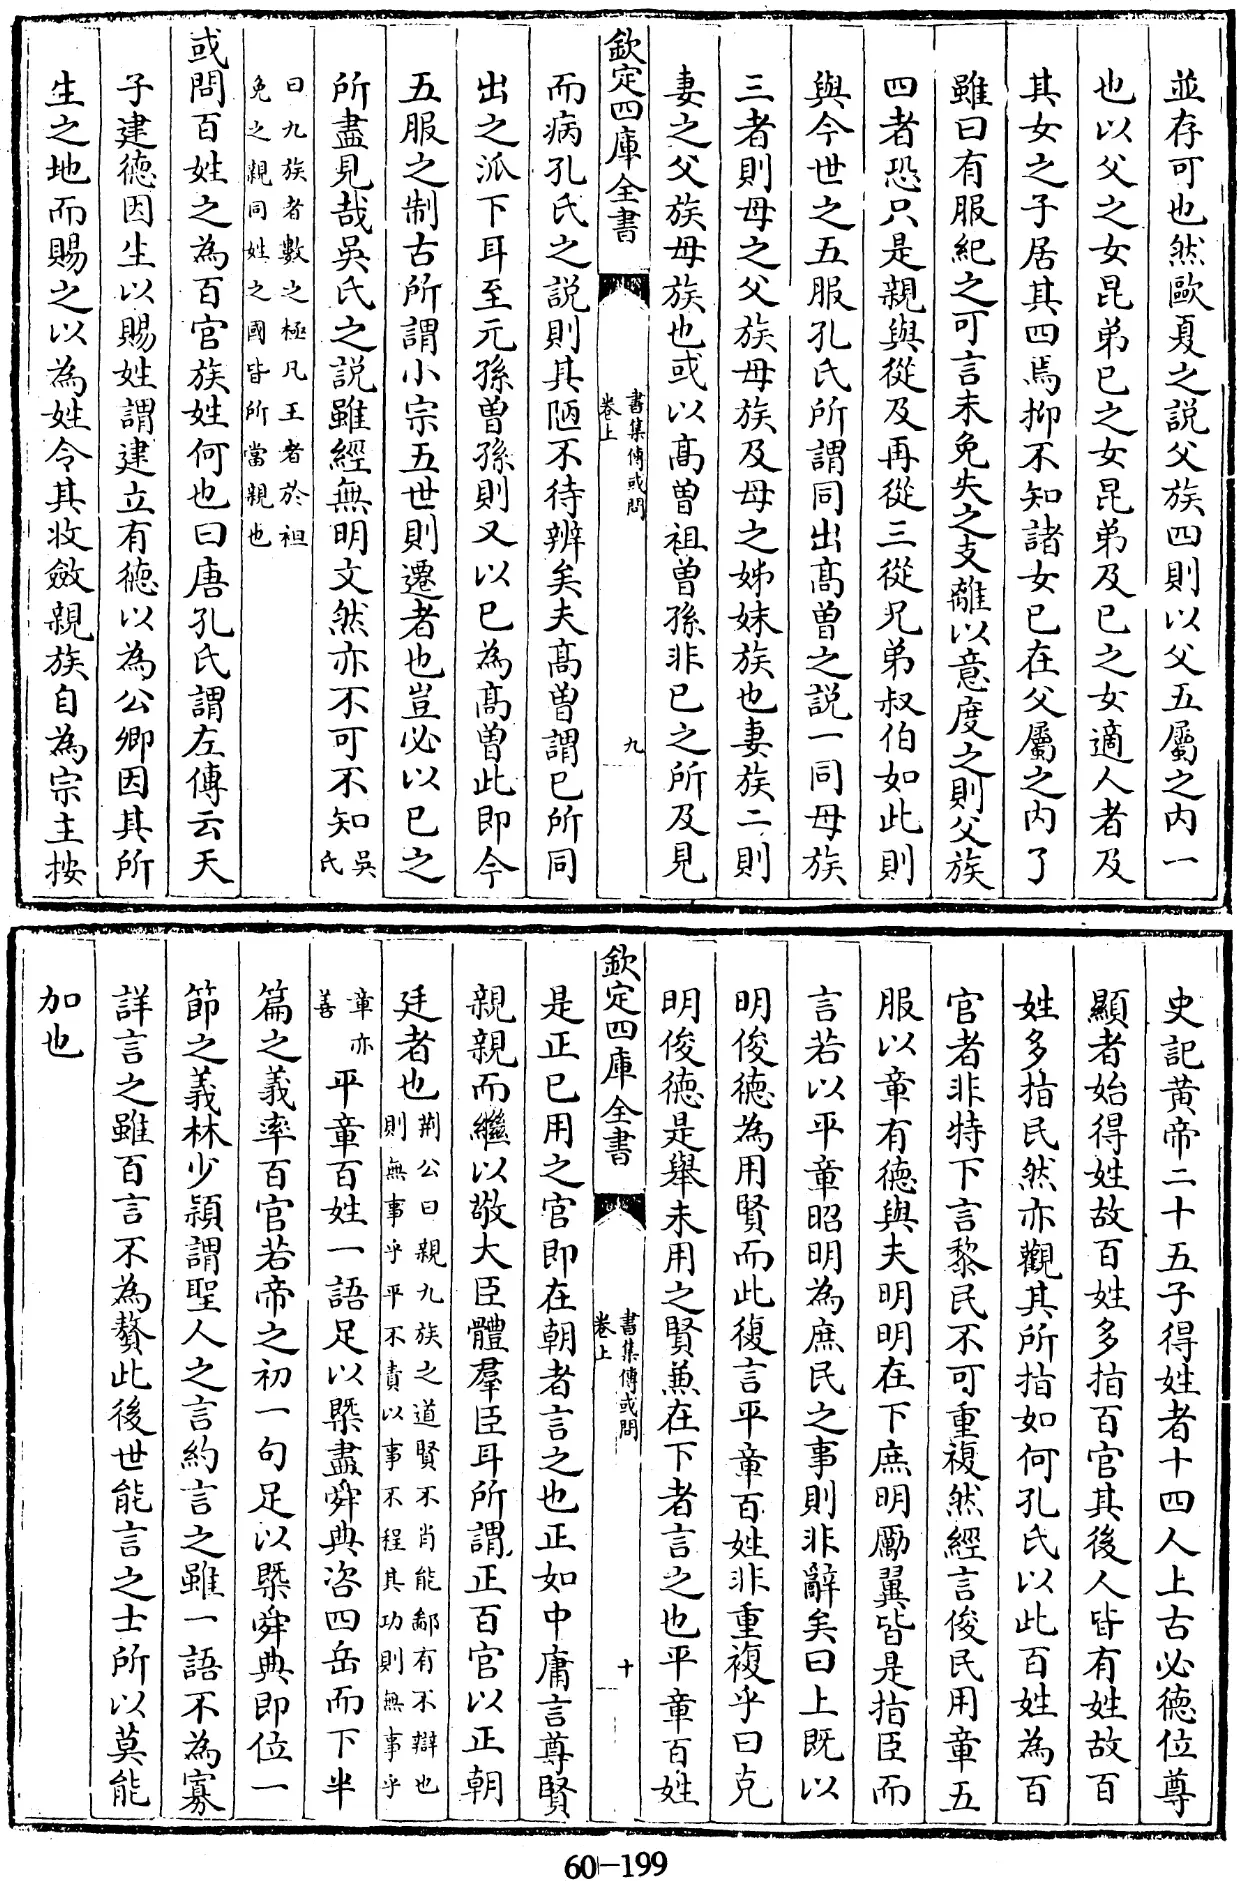 並存可也然歐夏之説父族四則以父五屬之内一
也以父之女昆弟已之女昆弟及已之女適人者及
其女之子居其四焉抑不知諸女已在父屬之内了
雖曰有服紀之可言未免失之支離以意度之則父族
四者恐只是親與從及再從三從兄弟叔伯如此則
與今世之五服孔氏所謂同出髙曽之説一同母族
三者則母之父族母族及母之姊妹族也妻族二則
妻之父族母族也或以髙曽祖曽孫非已之所及見
欽定四庫全書
書集傳或問
卷上
九
而病孔氏之説則其陋不待辨矣夫髙曽謂已所同
出之派下耳至元孫曽孫則又以已為髙曽此即今
五服之制古所謂小宗五世則遷者也豈必以已之
所盡見哉吳氏之説雖經無明文然亦不可不知吳氏
曰九族者數之極凡王者於袒
免之親同姓之國皆所當親也
或問百姓之為百官族姓何也曰唐孔氏謂左傳云天
子建德因生以賜姓謂建立有德以為公卿因其所
生之地而賜之以為姓令其收斂親族自為宗主按
史記黄帝二十五子得姓者十四人上古必德位尊
顯者始得姓故百姓多指百官其後人皆有姓故百
姓多指民然亦觀其所指如何孔氏以此百姓為百
官者非特下言黎民不可重複然經言俊民用章五
服以章有德與夫明明在下庶明勵翼皆是指臣而
言若以平章昭明為庶民之事則非辭矣曰上既以
明俊德為用賢而此復言平章百姓非重複乎曰克
明俊德是舉未用之賢兼在下者言之也平章百姓
欽定四庫全書
書集傳或問
卷上
十
是正已用之官即在朝者言之也正如中庸言尊賢
親親而繼以敬大臣體羣臣耳所謂正百官以正朝
廷者也荆公曰親九族之道賢不肖能鄙有不辯也
則無事乎平不責以事不程其功則無事乎
章亦善平章百姓一語足以槩盡舜典咨四岳而下半
篇之義率百官若帝之初一句足以槩舜典即位一
節之義林少穎謂聖人之言約言之雖一語不為寡
詳言之雖百言不為贅此後世能言之士所以莫能
加也
60-199